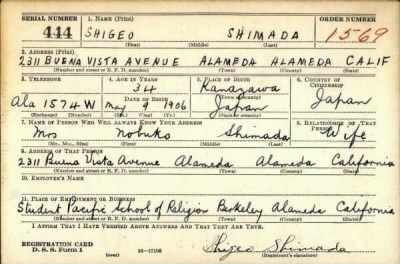 SERIAL NUMBER 1. NAME (Print) ORDER NUMBER
444 SHIGEO SHIMADA 1569
(First) (Middle) (Last)
2. ADDRESS (Print)
2311 BUENA VISTA AVENUE ALAMEDA ALAMEDA CALIF
(Number and street or R. F. D. number) (Town) (County) (State)
3. TELEPHONE 4. AGE IN YEARS 5. PLACE OF BIRTH 6. COUNTRY OF CITIZENSHIP
34 Kanazawa
DATE OF BIRTH (Town or county)
Ala 1574 W May 9 1906 Japan Japan
(Exchange) (Number) (Mo.) (Day) (Yr.) (State or country)
7. NAME OF PERSON WHO WILL ALWAYS KNOW YOUR ADDRESS 8. RELATIONSHIP OF THAT PERSON
Mrs Nobuko Shimada Wife
(Mr., Mrs., Miss) (First) (Middle) (Last)
9. ADDRESS OF THAT PERSON
2311 Buena Vista Avenue Alameda Alameda California
(Number and street or R. F. D. number) (Town) (County) (State)
10. EMPLOYER'S NAME
11. PLACE OF EMPLOYMENT OR BUSINESS
Student Pacific School of Religion Berkeley Alameda California
(Number and street or R. F. D. number) (Town) (County) (State)
I AFFIRM THAT I HAVE VERIFIED ABOVE ANSWERS AND THAT THEY ARE TRUE.
REGISTRATION CARD
D. S. S. Form 1 16—17105 Shigeo Shimada
(Registrant's signature)